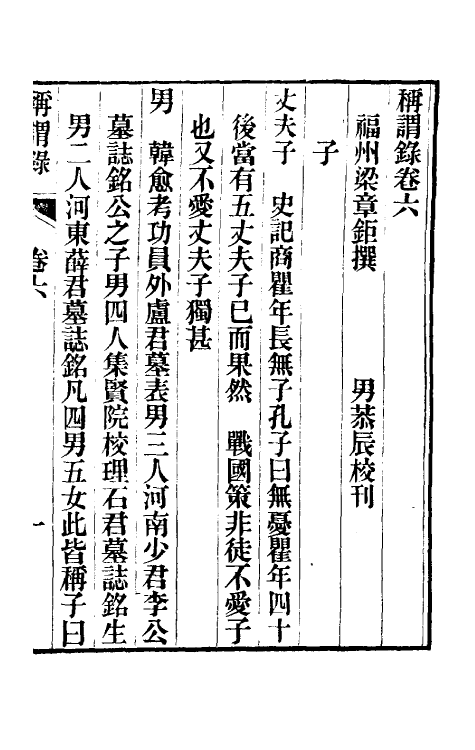 稱謂錄卷六
福州梁章鉅撰　男恭辰校刊
子
丈夫子　史記商瞿年長無子孔子曰無憂瞿年四十
後當有五丈夫子已而果然　戰國策非徒不愛子
也又不愛丈夫子獨甚
男　韓愈考功員外盧君墓表男三人河南少君李公
墓誌銘公之子男四人集賢院校理石君墓誌銘生
男二人河東薛君墓誌銘凡四男五女此皆稱子曰
稱謂錄　卷六　一